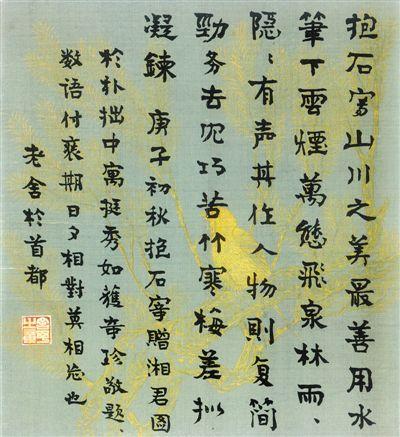 抱石写山川之美最善用水
筆下雲煙萬態飛泉林雨、
隱、有声其作人物則复简
勁务去巧苦竹寒梅差拟
凝鍊 庚子初秋抱石写赠湘君图
於朴拙中寓挺秀如獲奇珍敬题、
数语付裱期日夕相對莫相忘也
老舍於首都